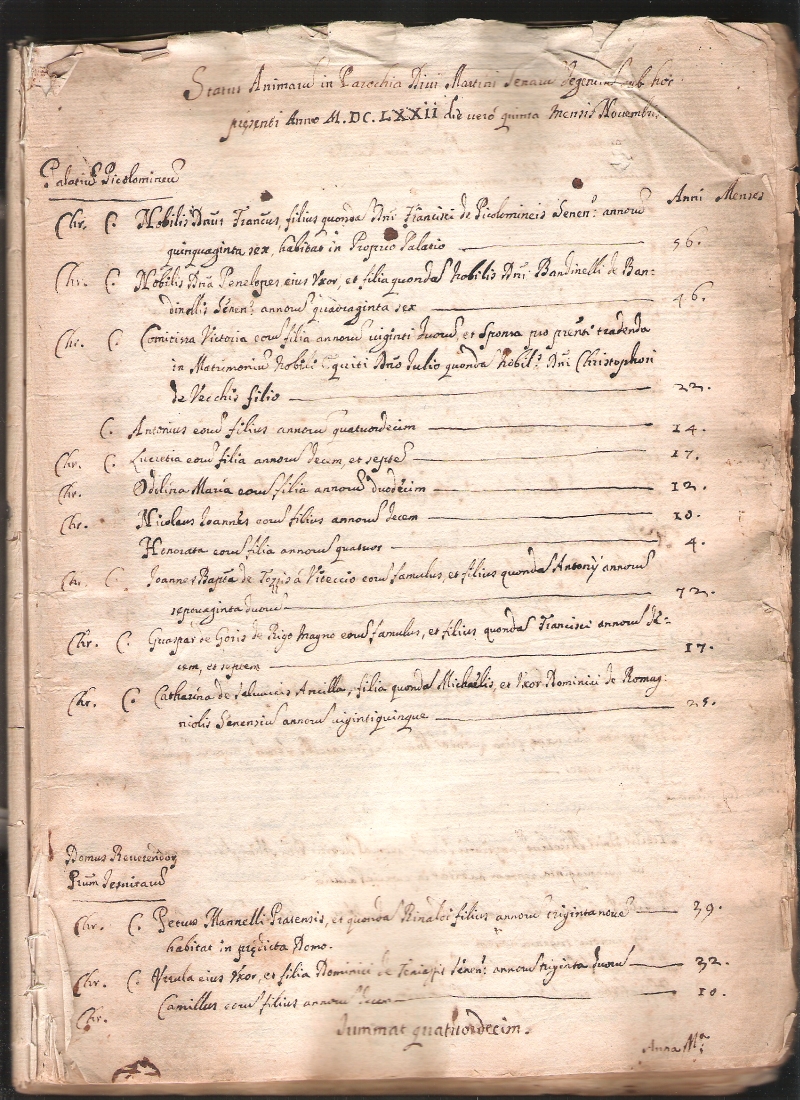 Status Animarũ in Parochia Divi Martini Senarũ degentiũ sub hoc
presenti Anno M.DC.LXXII die verò quinta mensis Novembris.
Palatiũ Picolomineũ
Anni Menses
Chr. C. Nobilis Dnũs Francus, filius quondã Dni Francisci de Picolomineis Senen: annorũ
quinquaginta sex, habitat in Proprio Palatio 56.
Chr. C. Nobilis Dna Penelopes eius Vxor, et filia quondã Nobilis Dni Bandinelli de Ban:
dinellis Senen: annorũ quadraginta sex 46.
Chr. C. Comitissa Victoria eorũ filia annorũ viginti duorũ, et Sponsa pro presenti tradenda
in Matrimoniũ Nobili Equiti Dno Iulio quondã Nobil: Dni Christophori
de Vecchis filio 22.
C. Antonius eorũ filius annorũ quatuordecim 14.
Chr. C. Lucretia eorũ filia annorũ decem, et septẽ 17.
Chr. Odilina Maria eorũ filia annorũ duodecim 12.
Chr. Nicolaus Ioannes eorũ filius annorũ decem 10.
Honorata eorũ filia annorũ quatuor 4.
Chr. C. Ioannes Bapta de à eorũ famulus, et filius quondã Antonij annorũ
septuaginta duorũ 72.
Chr. C. Guaspar de Goris de Rigo Magno eorũ famulus, et filius quondã Francisci annorũ de:
cem, et septem 17.
Chr. C. Catharina de Ancilla, filia quondã Michaelis, et Vxor Dominici de Romag:
niolis Senensiũ annorũ vigintiquinque 25.
Domus Reverendor
Prum Iesuitarũ
Chr. C. Petrus Mannelli Pratensis, et quondã Rinaldi filius annorũ trigintanovẽ 39.
habitat in predicta Domo.
Chr. C. Vrsula eius Vxor, et filia Dominici de Senen: annorũ triginta duorũ 32.
Chr. Camillus eorũ filius annorũ decem 10.
Summat quatuordecim.
Anna Mª